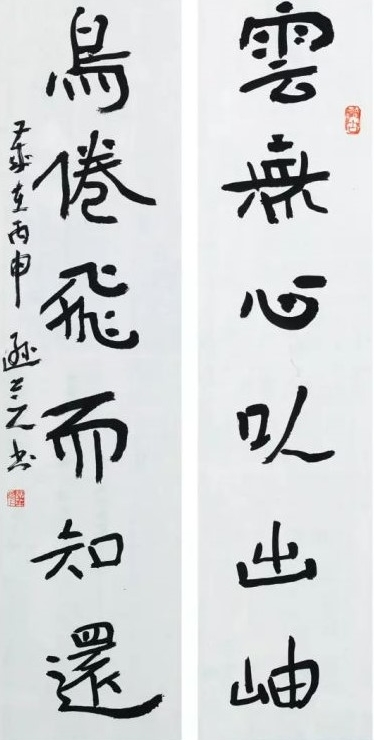 雲無心以出岫
鳥倦飛而知還
歲在丙申 书